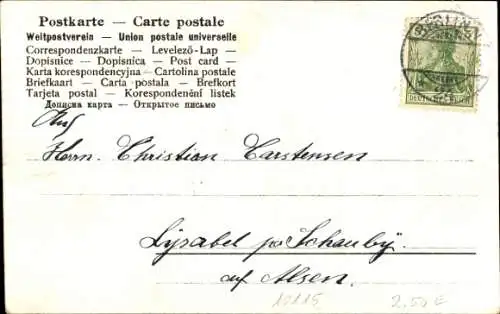 Postkarte — Carte postale
Weltpostverein — Union postale universelle
Correspondenzkarte — Levelező-Lap —
Dopisnice — Dopisnica — Post card —
Karta korespondencyjna — Cartolina postale
Briefkaart — Carta postala — Brefkort
Tarjeta postal — Korespondenční listek
Дописна карта — Открытое письмо
BERLIN
DEUTSCHES REICH
An
Herrn Christian Carstensen
Lysabel pr Schauby.
auf Alsen.
12115 2.50 €